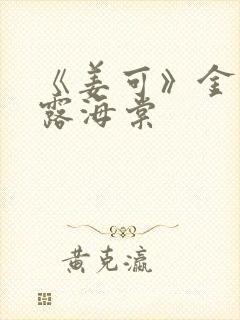 《姜可》金
露海棠
黄克瀛